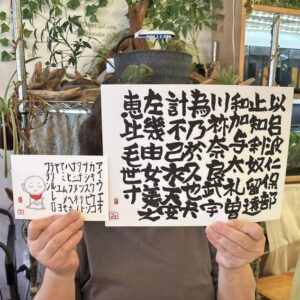 以呂波仁保部
止知利奴留遠
和加与太礼曽
川祢奈良武宇
為乃於久也末
計不己衣天安
左幾由女美之
恵比毛世寸
アイウエオ
カキクケコ
サシスセソ
タチツテト
ナニヌネノ
ハヒフヘホ
マミムメモ
ヤユヨ
ラリルレロ
ワヲン